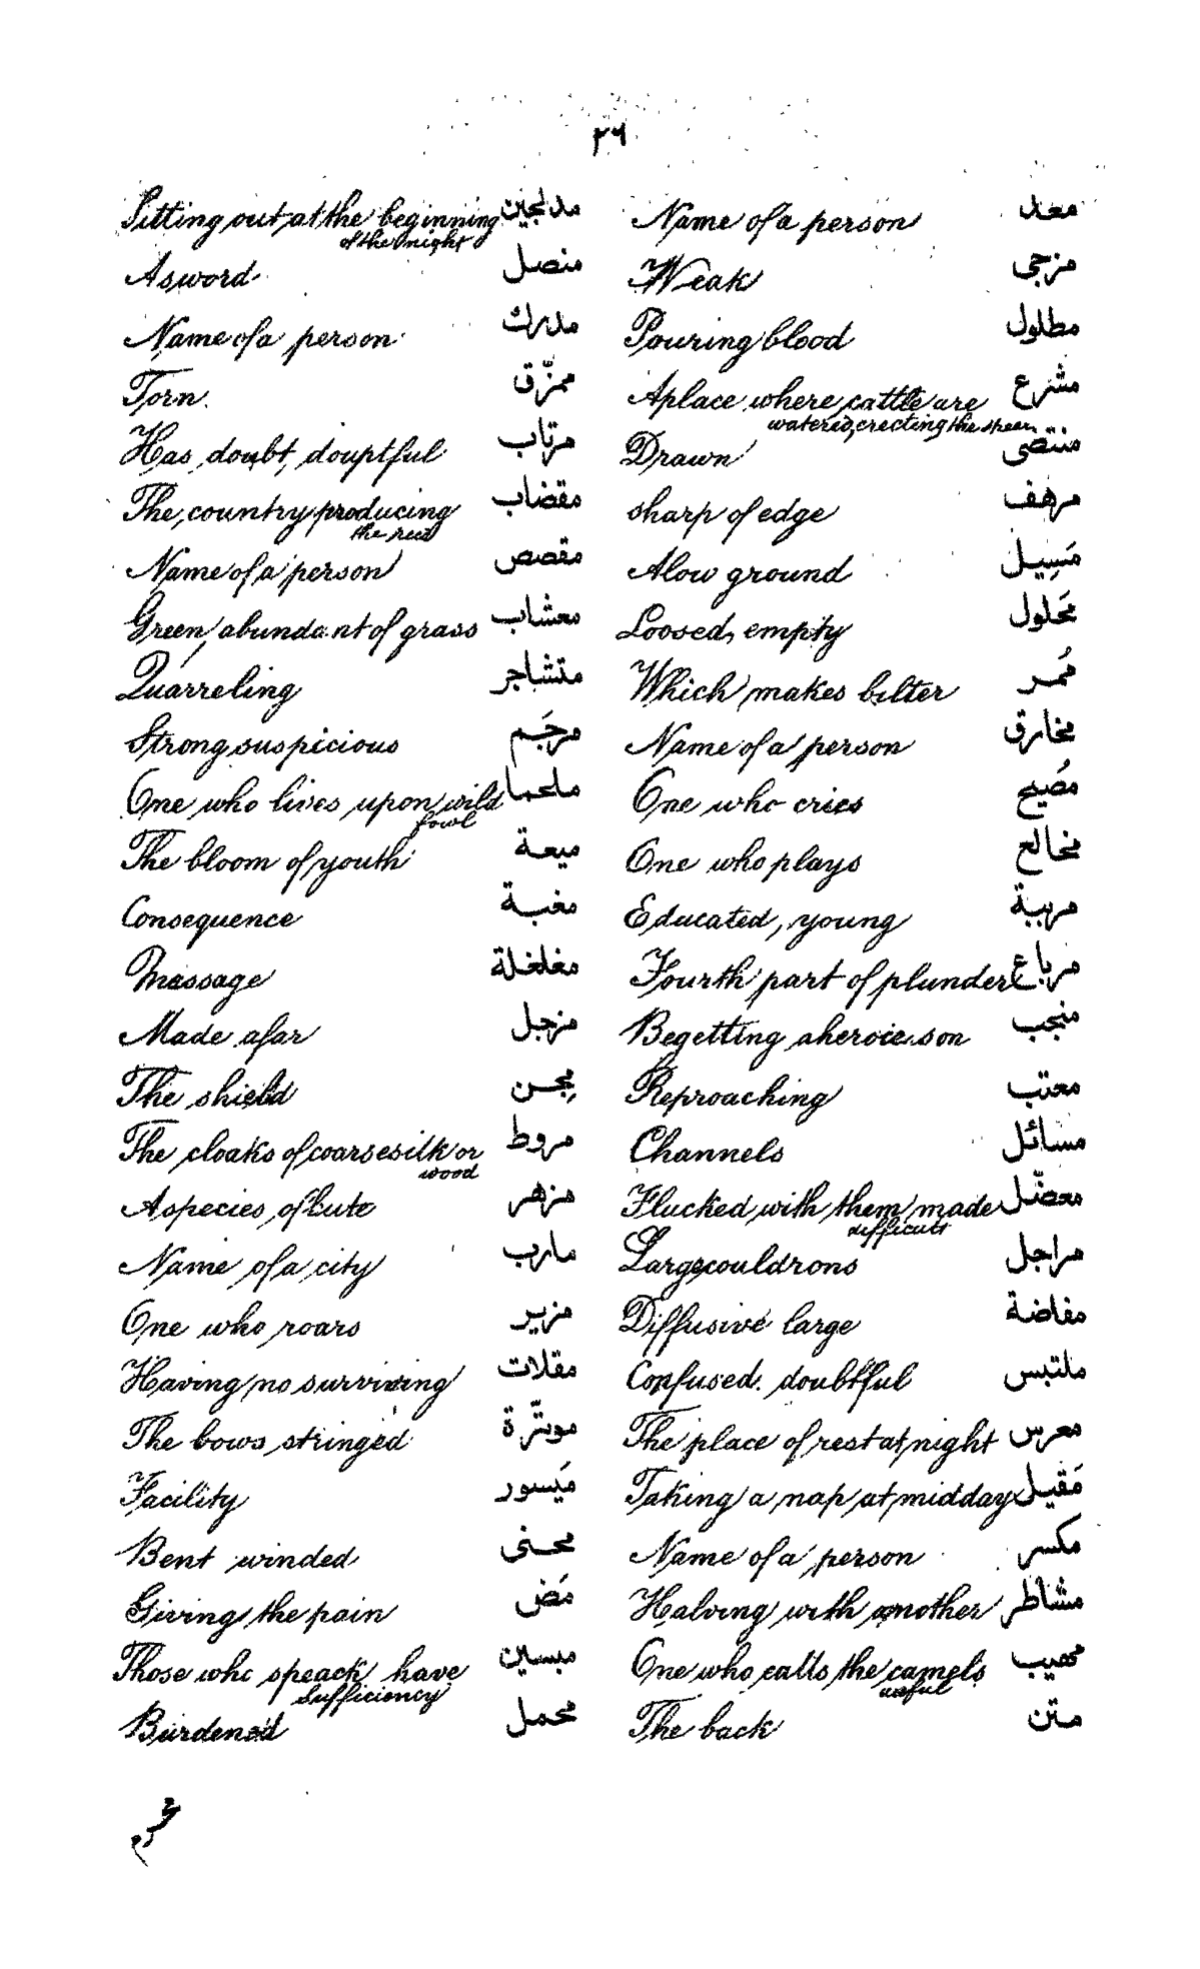 ٣٦
معد Name of a person
مزجى Weak
مطلول Pouring blood
مشرع A place where cattle are
watered, erecting the spear
منتضى Drawn
مرهف sharp of edge
مَسِيل A low ground
مَحلول Loosed, empty
مُمر Which makes bitter
مخارق Name of a person
مُصيح One who cries
مخالع One who plays
مربية Educated, young
مرباع Fourth part of plunder
منجب Begetting a heroic son
معتب Reproaching
مسائل Channels
معضّل Flucked with them made
difficult
مراجل Large couldrons
مفاضة Diffusive large
ملتبس Confused. doubtful
معرس The place of rest at night
مَقيل Taking a nap at midday
مكسر Name of a person
مشاطر Halving with another
مهيب One who calls the camels
awful
متن The back
مدلجين Sitting out at the beginning
of the night
منصل A sword
مدرك Name of a person
ممزّق Torn.
مرتاب Has doubt, douptful
مقضاب The country producing
the
مقصص Name of a person
معشاب Green, abundant of grass
متشاجر Quarreling
مرجَم Strong suspicious
ملحما One who lives upon wild
fowl
ميعة The bloom of youth
مغبة Consequence
مغلغلة Massage
مزجل Made afar
مِجن The shield
مروط The cloaks of coarse silk or
wood
مزهر A species of lute
مارب Name of a city
مزير One who roars
مقلات Having no surviving
موتّرة The bows stringed
مَيسور Facility
محنى Bent winded
مَض Giving the pain
مبسين Those who speack have
sufficiency
محمل Burdened